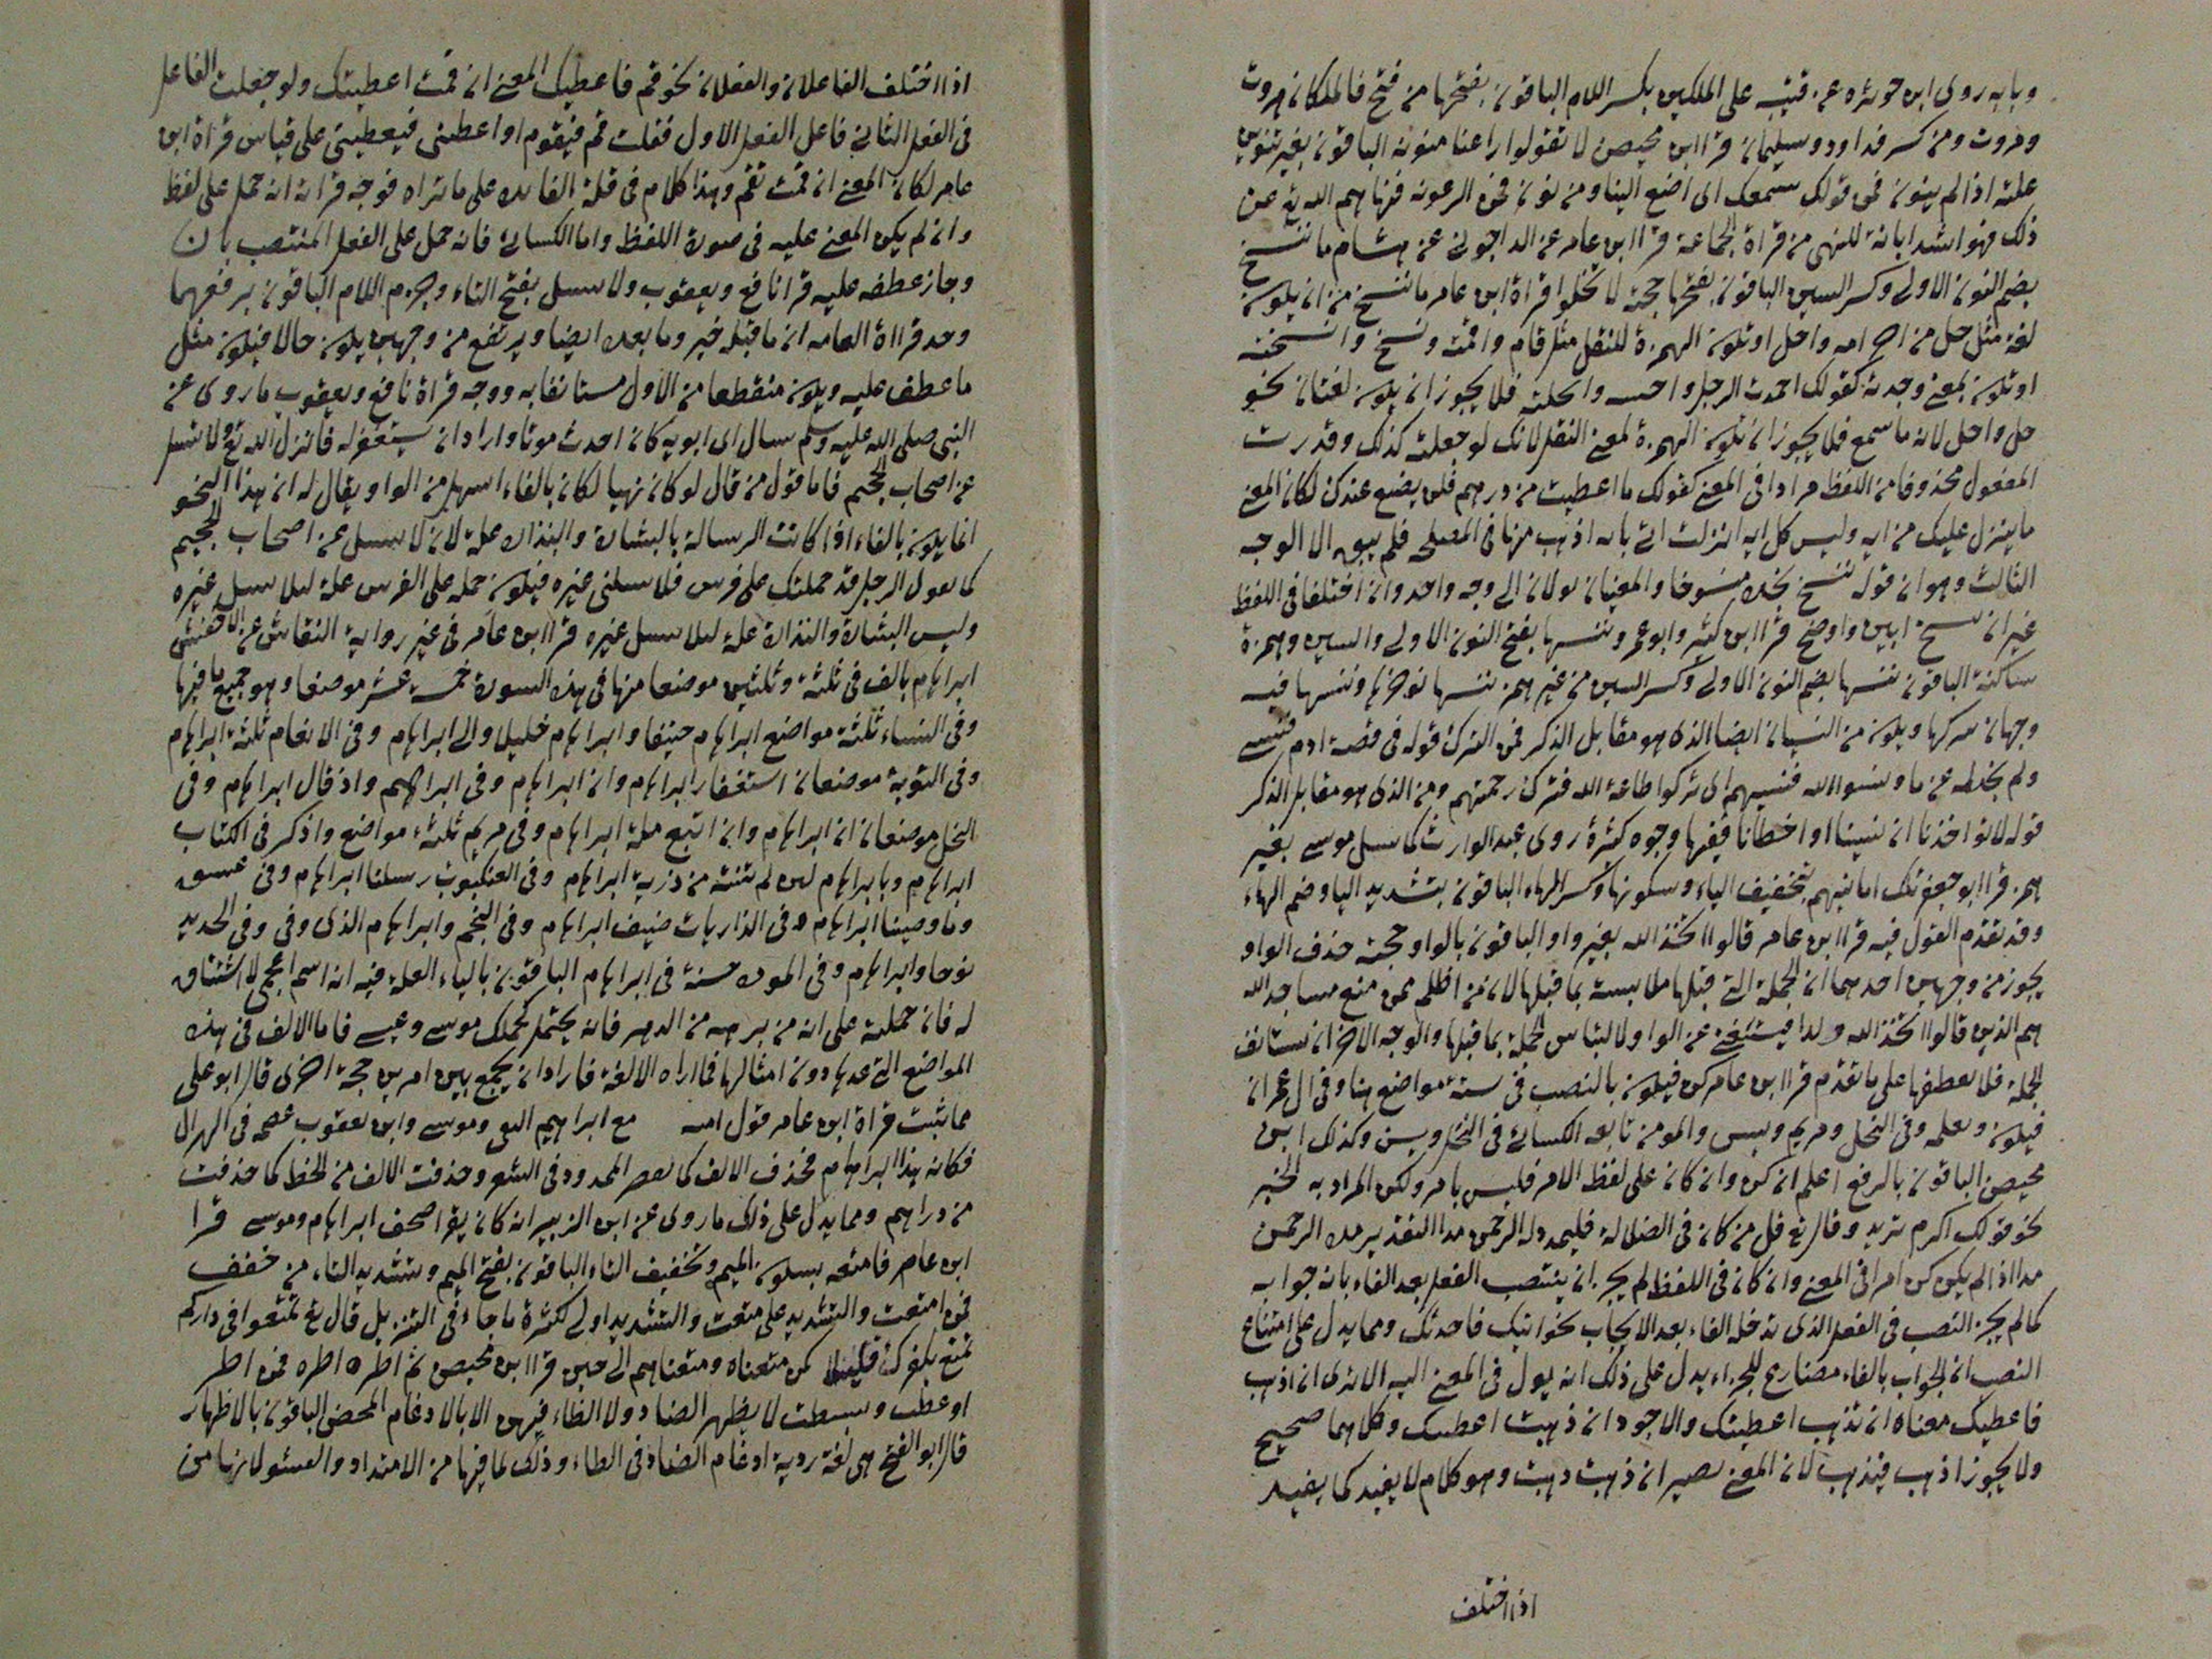 وبابه روى ابن حوثره عن قتيبه على الملكين بكسر اللام الباقون بفتحها من فتح فالملكان هروت
ومروت ومن كسر فداود وسليمان قرا ابن محيصن لا تقولوا راعنا منونه الباقون بغير تنوين
علته اذا لم ينون فمن قولك سمعك الى اضع الينا ومن نون فمن الرعونه فنهاهم الله تع عن
ذلك فهو اشد ابانة للنهى من قراة الجماعة قرا ابن عامر عن الداجونى عن هشام ما ننسخ
بضم النون الاولى وكسر السين الباقون بفتحها حجة لا تخلوا قراة ابن عامر ما ننسخ من ان يكون
لغة مثل حل من احرامه واحل او تكون الهمزة للنقل مثل قام واقمت ونسخ وانسخته
او تكون بمعنى وجدته كقولك احمدت الرجل وا فلا يجوز ان يكون لغتان نحو
حل واحل لانه ما سمع فلا يجوز ان تكون الهمزة لمعنى النقل لانك لو جعلته كذلك وقدرت
المفعول محذوفا من اللفظ مرادا فى المعنى كقولك ما اعطيت من درهم فلن يضيع عندك لكان المعنى
ما ينزل عليك من ايه وليس كل ايه انزلت اتى اذهب منها فى المصلحه فلم يبق الا الوجه
الثالث وهو ان قوله ننسخ نجده منسوخا والمعنيان يولان الى وجه واحد وان اختلفا فى اللفظ
غير ان نسخ ابين واوضح قرا ابن كثير وابو عمرو ننسها بفتح النون الاولى والسين وهمزة
ساكنة الباقون ننسها بضم النون الاولى وكسر السين من غير همز ننسها نوخرها وننسها فيه
وجهان نتركها ويكون من النسيان ايضا الذى هو مقابل الذكر فمن الترك قوله فى قصة ادم فنسى
ولم نجد له عزما ونسوا الله فنسيهم اى تركوا طاعة الله فترك رحمتهم ومن الذى هو مقابل الذكر
قوله لا تواخذنا ان نسينا او اخطانا فيها وجوه كثيرة روى عبد الوارث كما سيل موسى بغير
همز قرا ابو جعفر تلك امانيهم بتخفيف الياء وسكونها وكسر الهاء الباقون بتشديد اليا وضم الهاء
وقد تقدم القول فيه قرا ابن عامر قالوا اتخذ الله بغير واو الباقون بالواو حجته حذف الواو
يجوز من وجهين احدهما ان الجملة التى قبلها ملابسة بما قبلها لان من اظلم ممن منع مساجد الله
هم الذين قالوا اتخذ الله ولدا فيستغنى عن الواو لالتباس الجملة بما قبلها والوجه الاخر ان نستانف
الجملة فلا يعطفها على ما تقدم قرا ابن عامر كن فيكون بالنصب فى ستة مواضع هنا وفى ال عمران
فيكون ويعلمه وفى النحل ومريم ويس والمومن تابعه الكسائى فى النحل ويس وكذلك ابن
محيصن الباقون بالرفع اعلم ان كن وان كان على لفظ الامر فليس بامر ولكن المراد به الخبر
نحو قولك اكرم بزيد وقال تع قل من كان فى الضلالة فليمدد له الرحمن مدا التقدير مده الرحمن
مدا اذا لم يكن كن امرا فى المعنى وان كان فى اللفظ لم يجز ان ينتصب الفعل بعد الفاء بانه جوابه
كما لم يجز النصب فى الفعل الذى تدخله الفاء بعد الايجاب نحو اتيك فاحدثك ومما يدل على امتناع
النصب ان الجواب بالفاء مضارع للجزاء يدل على ذلك انه يول فى المعنى اليه الا ترى ان اذهب
فاعطيك معناه ان تذهب اعطيتك والاجود ان ذهبت اعطيتك وكلاهما صحيح
ولا يجوز اذهب فتذهب لان المعنى يصير ان ذهبت ذهبت وهو كلام لا يفيد كما يفيد
اذا اختلف
اذا اختلف الفاعلان والفعلان نحو قم فاعطيك المعنى ان قمت اعطيتك ولو جعلت الفاعل
فى الفعل الثانى فاعل الفعل الاول فقلت قم فتقوم او اعطنى فيعطينى على قياس قراة ابن
عامر لكان المعنى ان قمت تقم وهذا كلام فى قلة الفايده على ما تراه فوجه قرانه انه حمل على لفظ
وان لم يكن المعنى عليه فى صورة اللفظ واما الكسائى فانه حمل على الفعل المنتصب بان
وجاز عطفه عليه قرا نافع ويعقوب ولا تسل بفتح التاء وجزم اللام الباقون برفعهما
وحد قراة العامه ان ما قبله خبر وما بعده ايضا ويرتفع من وجهين يكون حالا فيكون مثل
ما عطف عليه ويكون منقطعا من الاول مستانفا به ووجه قراة نافع ويعقوب ما روى عن
النبى صلى الله عليه وسلم سال اى ابويه كان احدث موتا واراد ان يستغفر له فانزل الله تع ولا تسل
عن اصحاب الجحيم فاما قول من قال لو كان نهيا لكان بالفاء اسهل من الواو يقال له ان هذا النحو
انما يكون بالفاء اذا كانت الرسالة بالبشارة والنذارة علة لان لا تسل عن اصحاب الجحيم
كما يقول الرجل قد حملتك على فرس فلا تسلنى غيره فيكون حمله على الفرس علة ليلا يسل غيره
وليس البشارة والنذارة علة ليلا يسل غيره قرا ابن عامر فى غير رواية النقاش عن الاخفش
ابراهام بالف فى ثلثة وثلثين موضعا منها فى هذه السورة خمسة عشر موضعا وهو جميع ما فيها
وفى النساء ثلثة مواضع ابراهام حنيفا وابراهام خليلا والى ابراهام وفى الانعام ثلثة ابراهام
وفى التوبة موضعان استغفار ابراهام وان ابراهام وفى ابراهيم واذ قال ابراهام وفى
النحل موضعان ان ابراهام وان اتبع ملة ابراهام وفى مريم ثلثة مواضع واذكر فى الكتاب
ابراهام ويا ابراهام لين لم تنته من ذرية ابراهام وفى العنكبوت رسلنا ابراهام وفى عسق
وما وصينا ابراهام وفى الذاريات ضيف ابراهام وفى النجم وابراهام الذى وفى وفى الحديد
نوحا وابراهام وفى المودة حسنة فى ابراهام الباقون بالياء العلة فيه انه اسم اعجمى لا اشتقاق
له فان حملته على انه من برهه من الدهر فانه يحتمل كحملك موسى وعيسى فاما الالف فى هذه
المواضع التى عدها دون امثالها فما اراه الا لغة فاراد ان يجمع بين امرين حجة اخرى قال ابو على
مما ثبت قراة ابن عامر قول اميه مع ابراهيم التقى وموسى وابن يعقوب عصمه فى الهزال
فكانه هذا ابراهام فحذف الالف كما يقصر الممدود فى الشعر وحذفت الالف من الخط كما حذفت
من دراهم ومما يدل على ذلك ما روى عن ابن الزبير انه كان يقرا صحف ابراهام وموسى قرا
ابن عامر فامتعه بسكون الميم وتخفيف التاء الباقون بفتح الميم وتشديد التاء من خفف
فمن امتعت والتشديد على متعت والتشديد اولى لكثرة ما جاء فى التنزيل قال تع تمتعوا فى داركم
تمتع بكفرك قليلا كمن متعناه ومتعناهم الى حين قرا ابن محيصن ثم اطره اطره فمن اطر
او عطب وبسطت لا يظهر الضاد ولا الظاء فيهن الا بالادغام المحض الباقون بالاظهار
قال ابو الفتح هى لغة ردية ادغام الضاد فى الطاء وذلك لما فيها من الامتداد والفشو لانها من